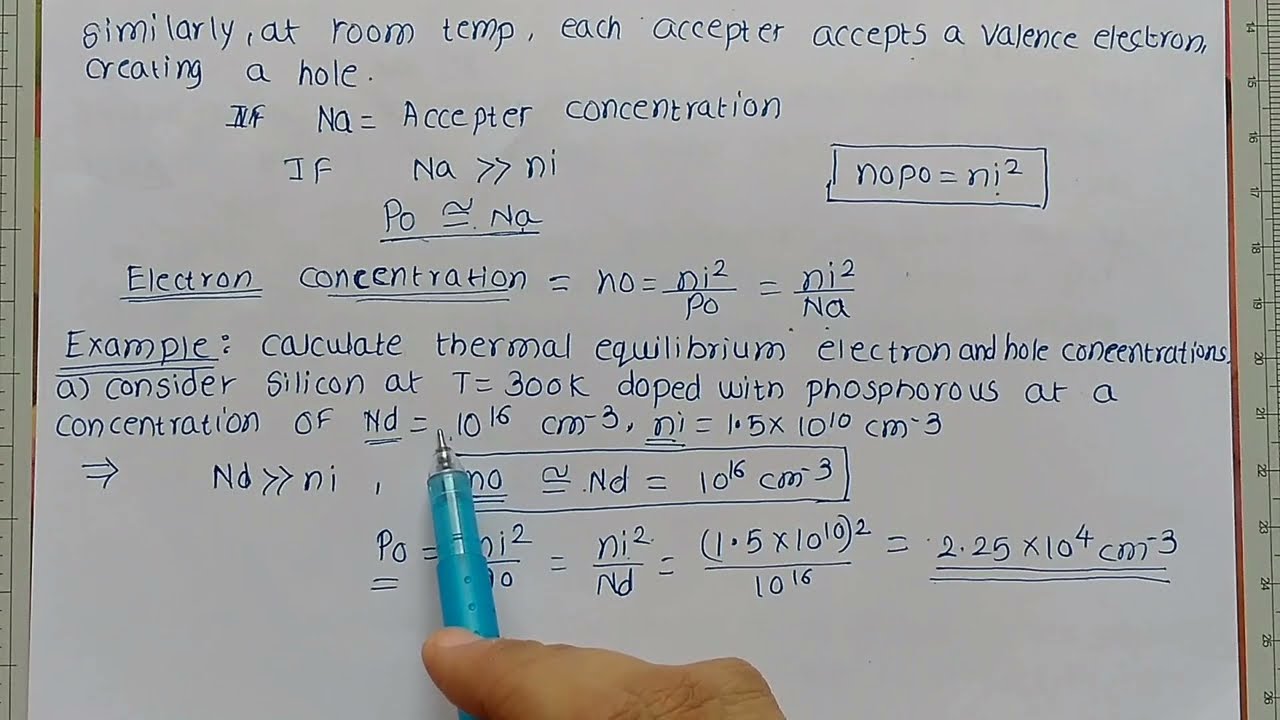 similarly, at room temp, each accepter accepts a valence electron,
creating a hole.
If Na = Accepter concentration
IF Na >> ni
nopo = ni²
Po ≅ Na
Electron concentration = no = ni²/Po = ni²/Na
Example: calculate thermal equilibrium electron and hole concentrations
a) consider silicon at T = 300K doped with phosphorous at a
concentration OF Nd = 10¹⁶ cm⁻³, ni = 1.5 × 10¹⁰ cm⁻³
⇒ Nd >> ni, no ≅ Nd = 10¹⁶ cm⁻³
Po = ni²/no = ni²/Nd = (1.5 × 10¹⁰)²/10¹⁶ = 2.25 × 10⁴ cm⁻³
14
15
16
17
18
19
20
21
22
23
24
25
26